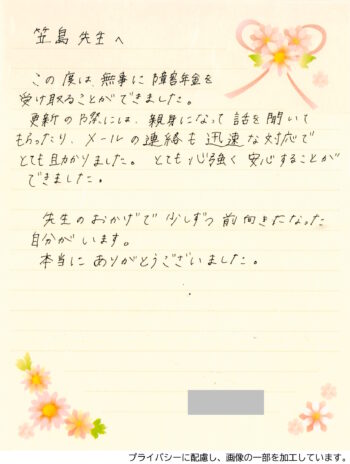 笠島 先生へ
この度は、無事に障害年金を
受け取ることができました。
更新の際には、親身になって話を聞いて
もらったり、メールの連絡も迅速な対応で
とても助かりました。とても心強く安心することが
できました。
先生のおかげで少しずつ前向きになった
自分がいます。
本当にありがとうございました。
プライバシーに配慮し、画像の一部を加工しています。